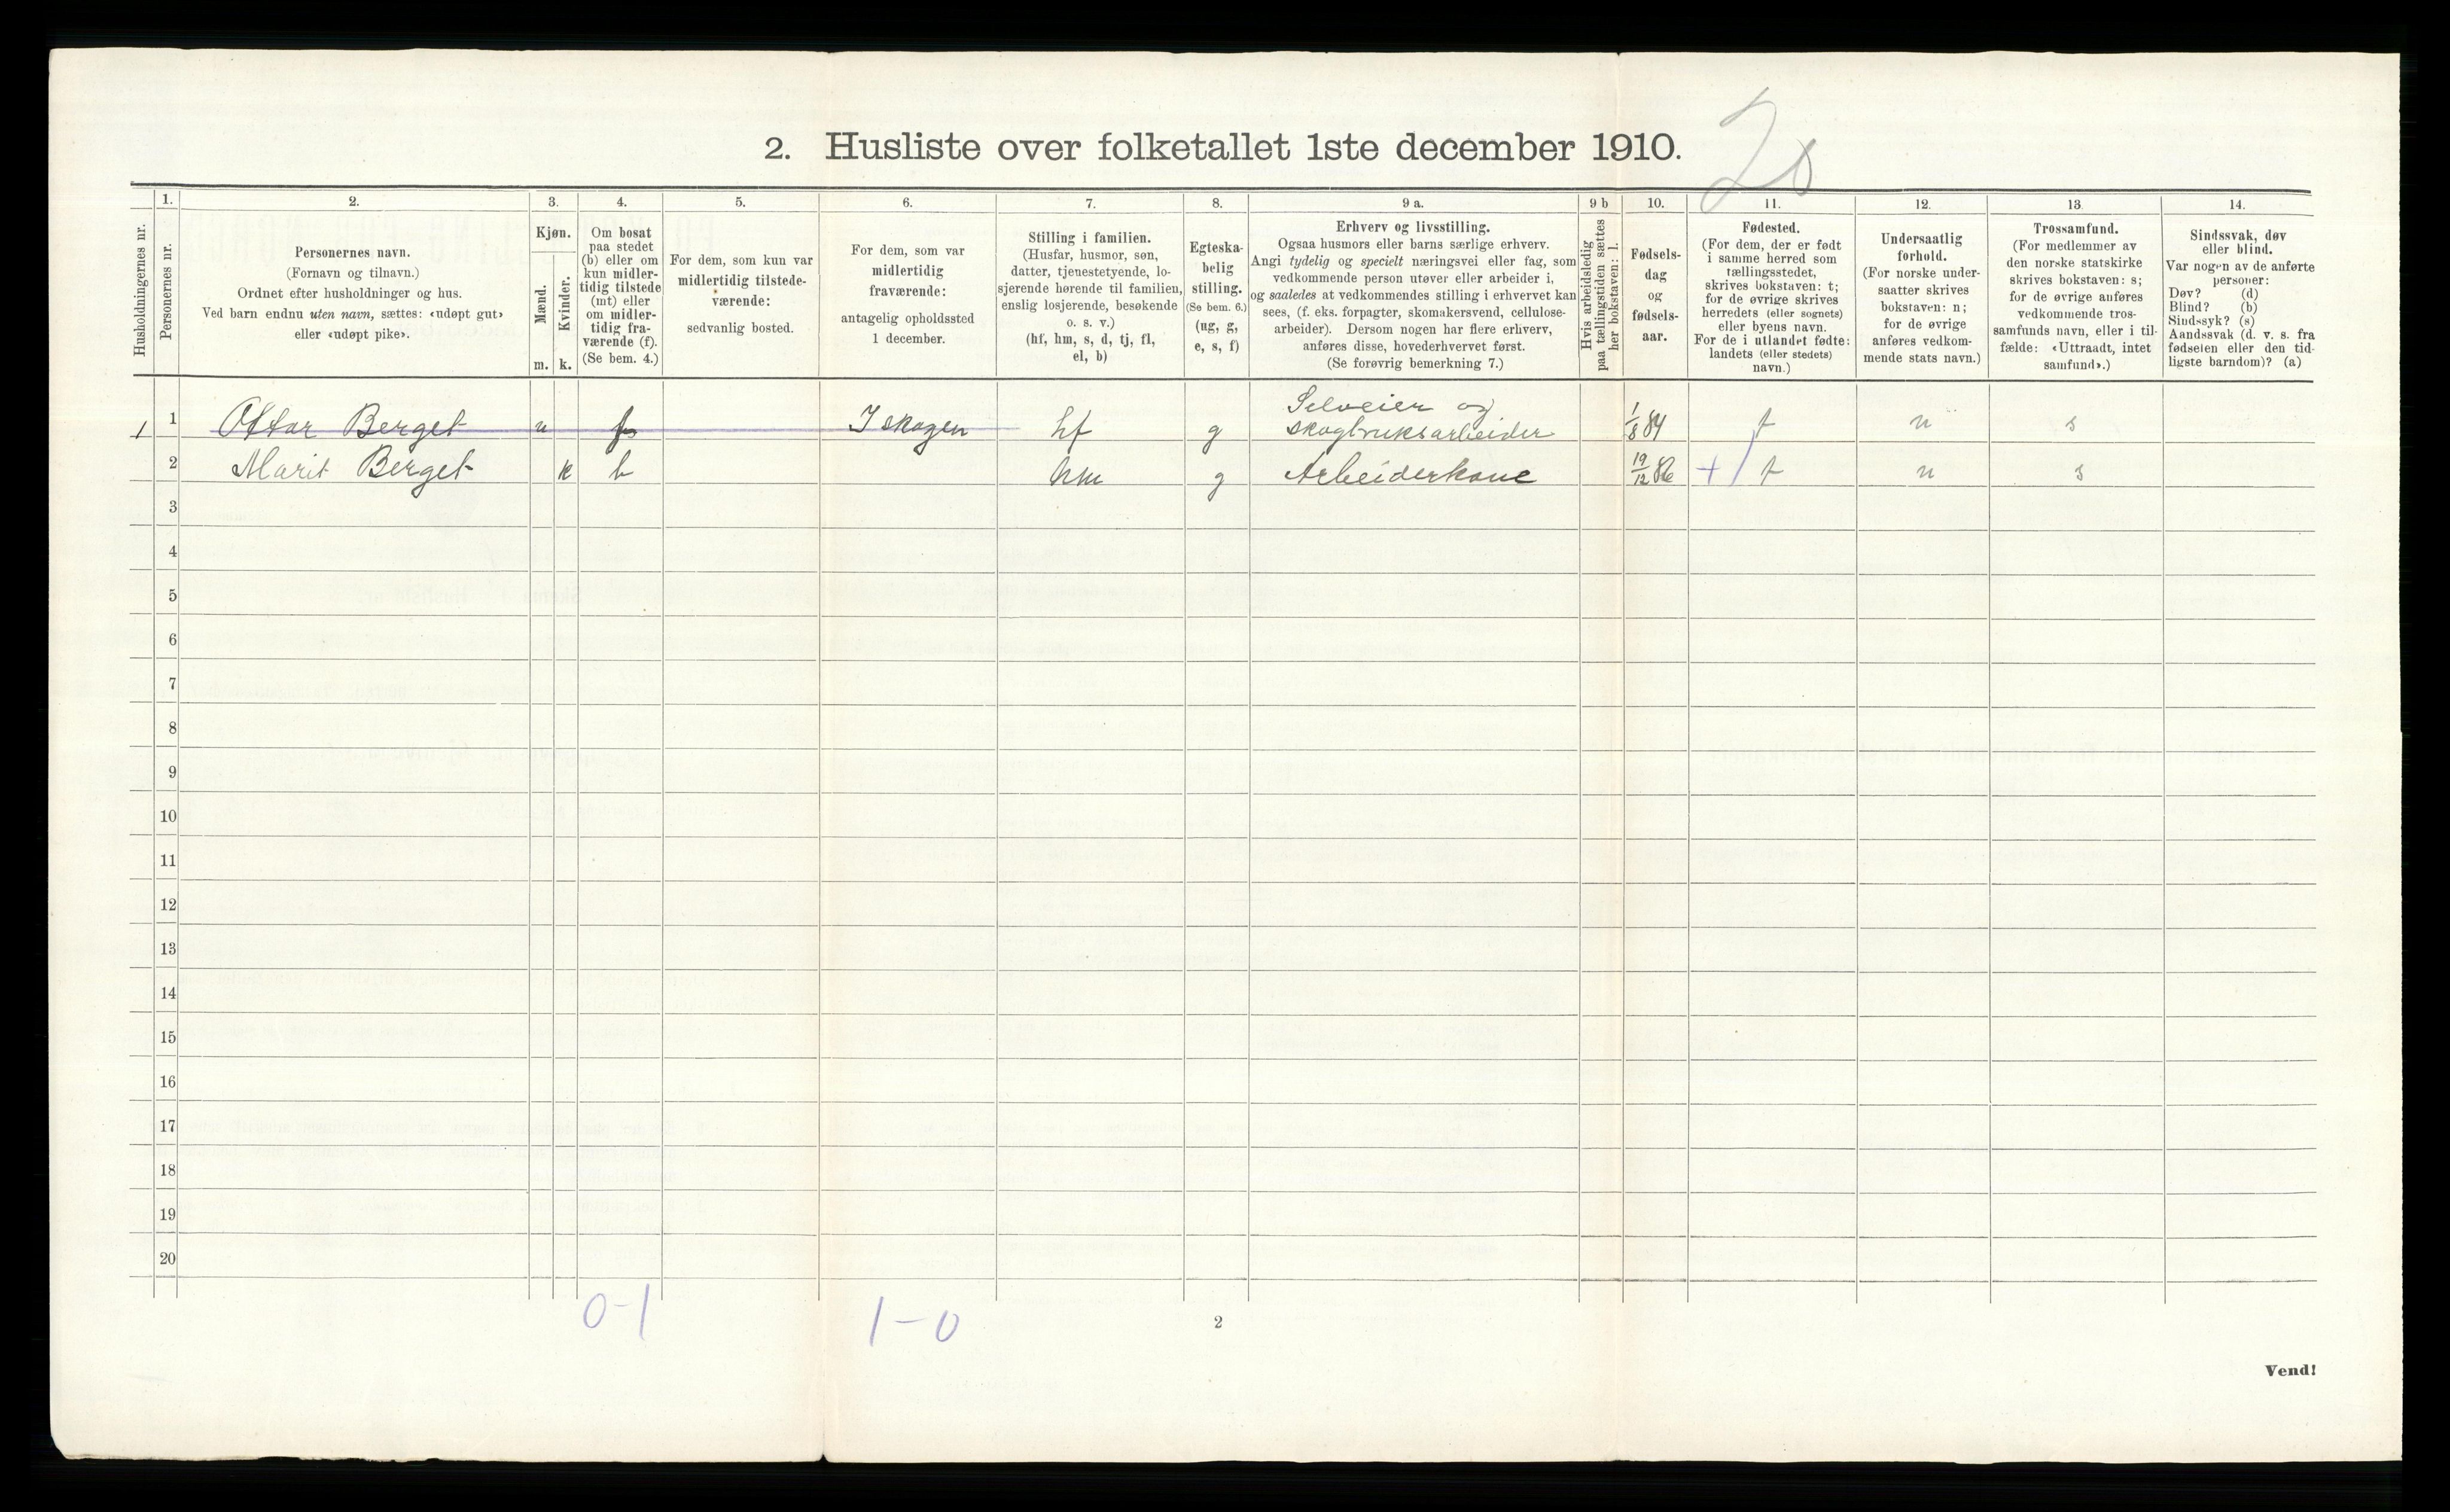 20
2. Husliste over folketallet 1ste december 1910.
Husholdningernes nr.
1.
Personernes nr.
2.
Personernes navn.
(Fornavn og tilnavn.)
Ordnet efter husholdninger og hus.
Ved barn endnu uten navn, sættes: «udøpt gut»
eller «udøpt pike».
3.
Kjøn.
Mænd.
m.
Kvinder.
k.
4.
Om bosat
paa stedet
(b) eller om
kun midler-
tidig tilstede
(mt) eller
om midler-
tidig fra-
værende (f).
(Se bem. 4.)
5.
For dem, som kun var
midlertidig tilstede-
værende:
sedvanlig bosted.
6.
For dem, som var
midlertidig
fraværende:
antagelig opholdssted
1 december.
7.
Stilling i familien.
(Husfar, husmor, søn,
datter, tjenestetyende, lo-
sjerende hørende til familien,
enslig losjerende, besøkende
o. s. v.)
(hf, hm, s, d, tj, fl,
el, b)
8.
Egteska-
belig
stilling.
(Se bem. 6.)
(ug, g,
e, s, f)
9 a.
Erhverv og livsstilling.
Ogsaa husmors eller barns særlige erhverv.
Angi tydelig og specielt næringsvei eller fag, som
vedkommende person utøver eller arbeider i,
og saaledes at vedkommendes stilling i erhvervet kan
sees, (f. eks. forpagter, skomakersvend, cellulose-
arbeider). Dersom nogen har flere erhverv,
anføres disse, hovederhvervet først.
(Se forøvrig bemerkning 7.)
9 b
Hvis arbeidsledig
paa tællingstiden sættes
her bokstaven: l.
10.
Fødsels-
dag
og
fødsels-
aar.
11.
Fødested.
(For dem, der er født
i samme herred som
tællingsstedet,
skrives bokstaven: t;
for de øvrige skrives
herredets (eller sognets)
eller byens navn.
For de i utlandet fødte:
landets (eller stedets)
navn.)
12.
Undersaatlig
forhold.
(For norske under-
saatter skrives
bokstaven: n;
for de øvrige
anføres vedkom-
mende stats navn.)
13.
Trossamfund.
(For medlemmer av
den norske statskirke
skrives bokstaven: s;
for de øvrige anføres
vedkommende tros-
samfunds navn, eller i til-
fælde: «Uttraadt, intet
samfund».)
14.
Sindssvak, døv
eller blind.
Var nogen av de anførte
personer:
Døv? (d)
Blind? (b)
Sindssyk? (s)
Aandssvak (d. v. s. fra
fødselen eller den tid-
ligste barndom)? (a)
1 1 Ottar Berget m f I skogen hf g Selveier og
skogbruksarbeider 1/8 84 t n s
2 Marit Berget k b hm g Arbeiderkone 19/12 86 + t n s
3
4
5
6
7
8
9
10
11
12
13
14
15
16
17
18
19
20
0-1 1-0
2
Vend!